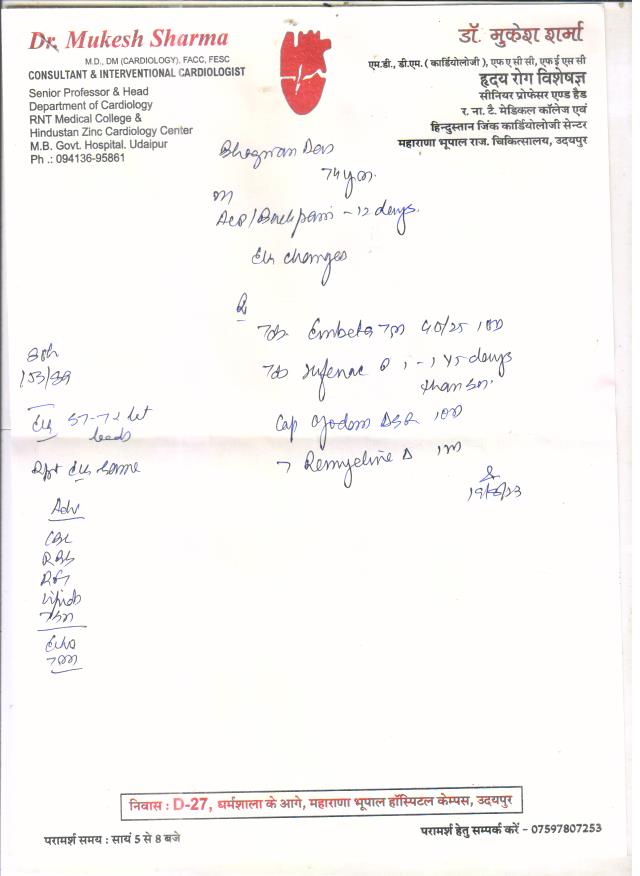 Dr. Mukesh Sharma
M.D., DM (CARDIOLOGY), FACC, FESC
CONSULTANT & INTERVENTIONAL CARDIOLOGIST
Senior Professor & Head
Department of Cardiology
RNT Medical College &
Hindustan Zinc Cardiology Center
M.B. Govt. Hospital. Udaipur
Ph .: 094136-95861
डॉ. मुकेश शर्मा
एम.डी., डी.एम. ( कार्डियोलोजी ), एफ ए सी सी, एफ ई एस सी
हृदय रोग विशेषज्ञ
सीनियर प्रोफेसर एण्ड हैड
र. ना. टै. मेडिकल कॉलेज एवं
हिन्दुस्तान जिंक कार्डियोलोजी सेन्टर
महाराणा भूपाल राज. चिकित्सालय, उदयपुर
74 yrs.
M
/Back pain - 12 days.
changes
Tab Embeta TM 1 OD
Tab 1 - 1 x 5 days
than sos
Cap DSR 1 OD
153/89
ST-T lat
leads
Rpt same
Adv
CBC
RBS
RFT
Lipids
TSH
Echo
निवास : D-27, धर्मशाला के आगे, महाराणा भूपाल हॉस्पिटल केम्पस, उदयपुर
परामर्श समय : सायं 5 से 8 बजे
परामर्श हेतु सम्पर्क करें - 07597807253